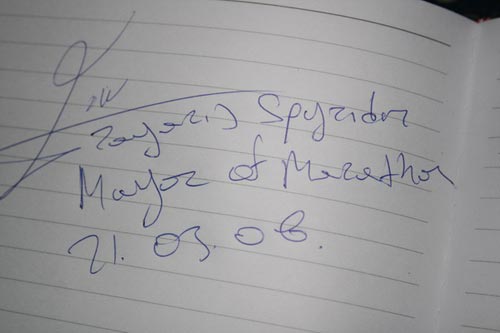 Zagaris Spyridon
Mayor of Marathon
21.03.06.